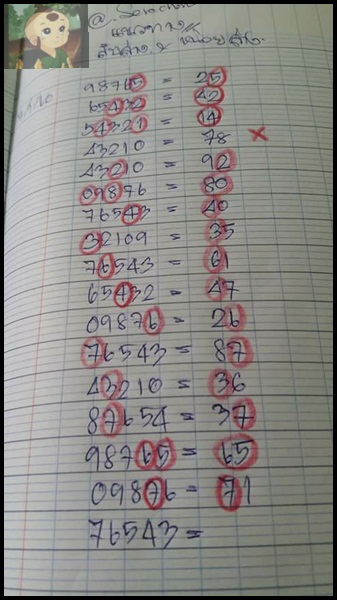 98765 = 25
65432 = 42
54321 = 14
43210 = 78 ×
43210 = 92
09876 = 80
76543 = 40
32109 = 35
76543 = 61
65432 = 47
09876 = 26
76543 = 87
43210 = 36
87654 = 37
98765 = 65
09876 = 71
76543 =